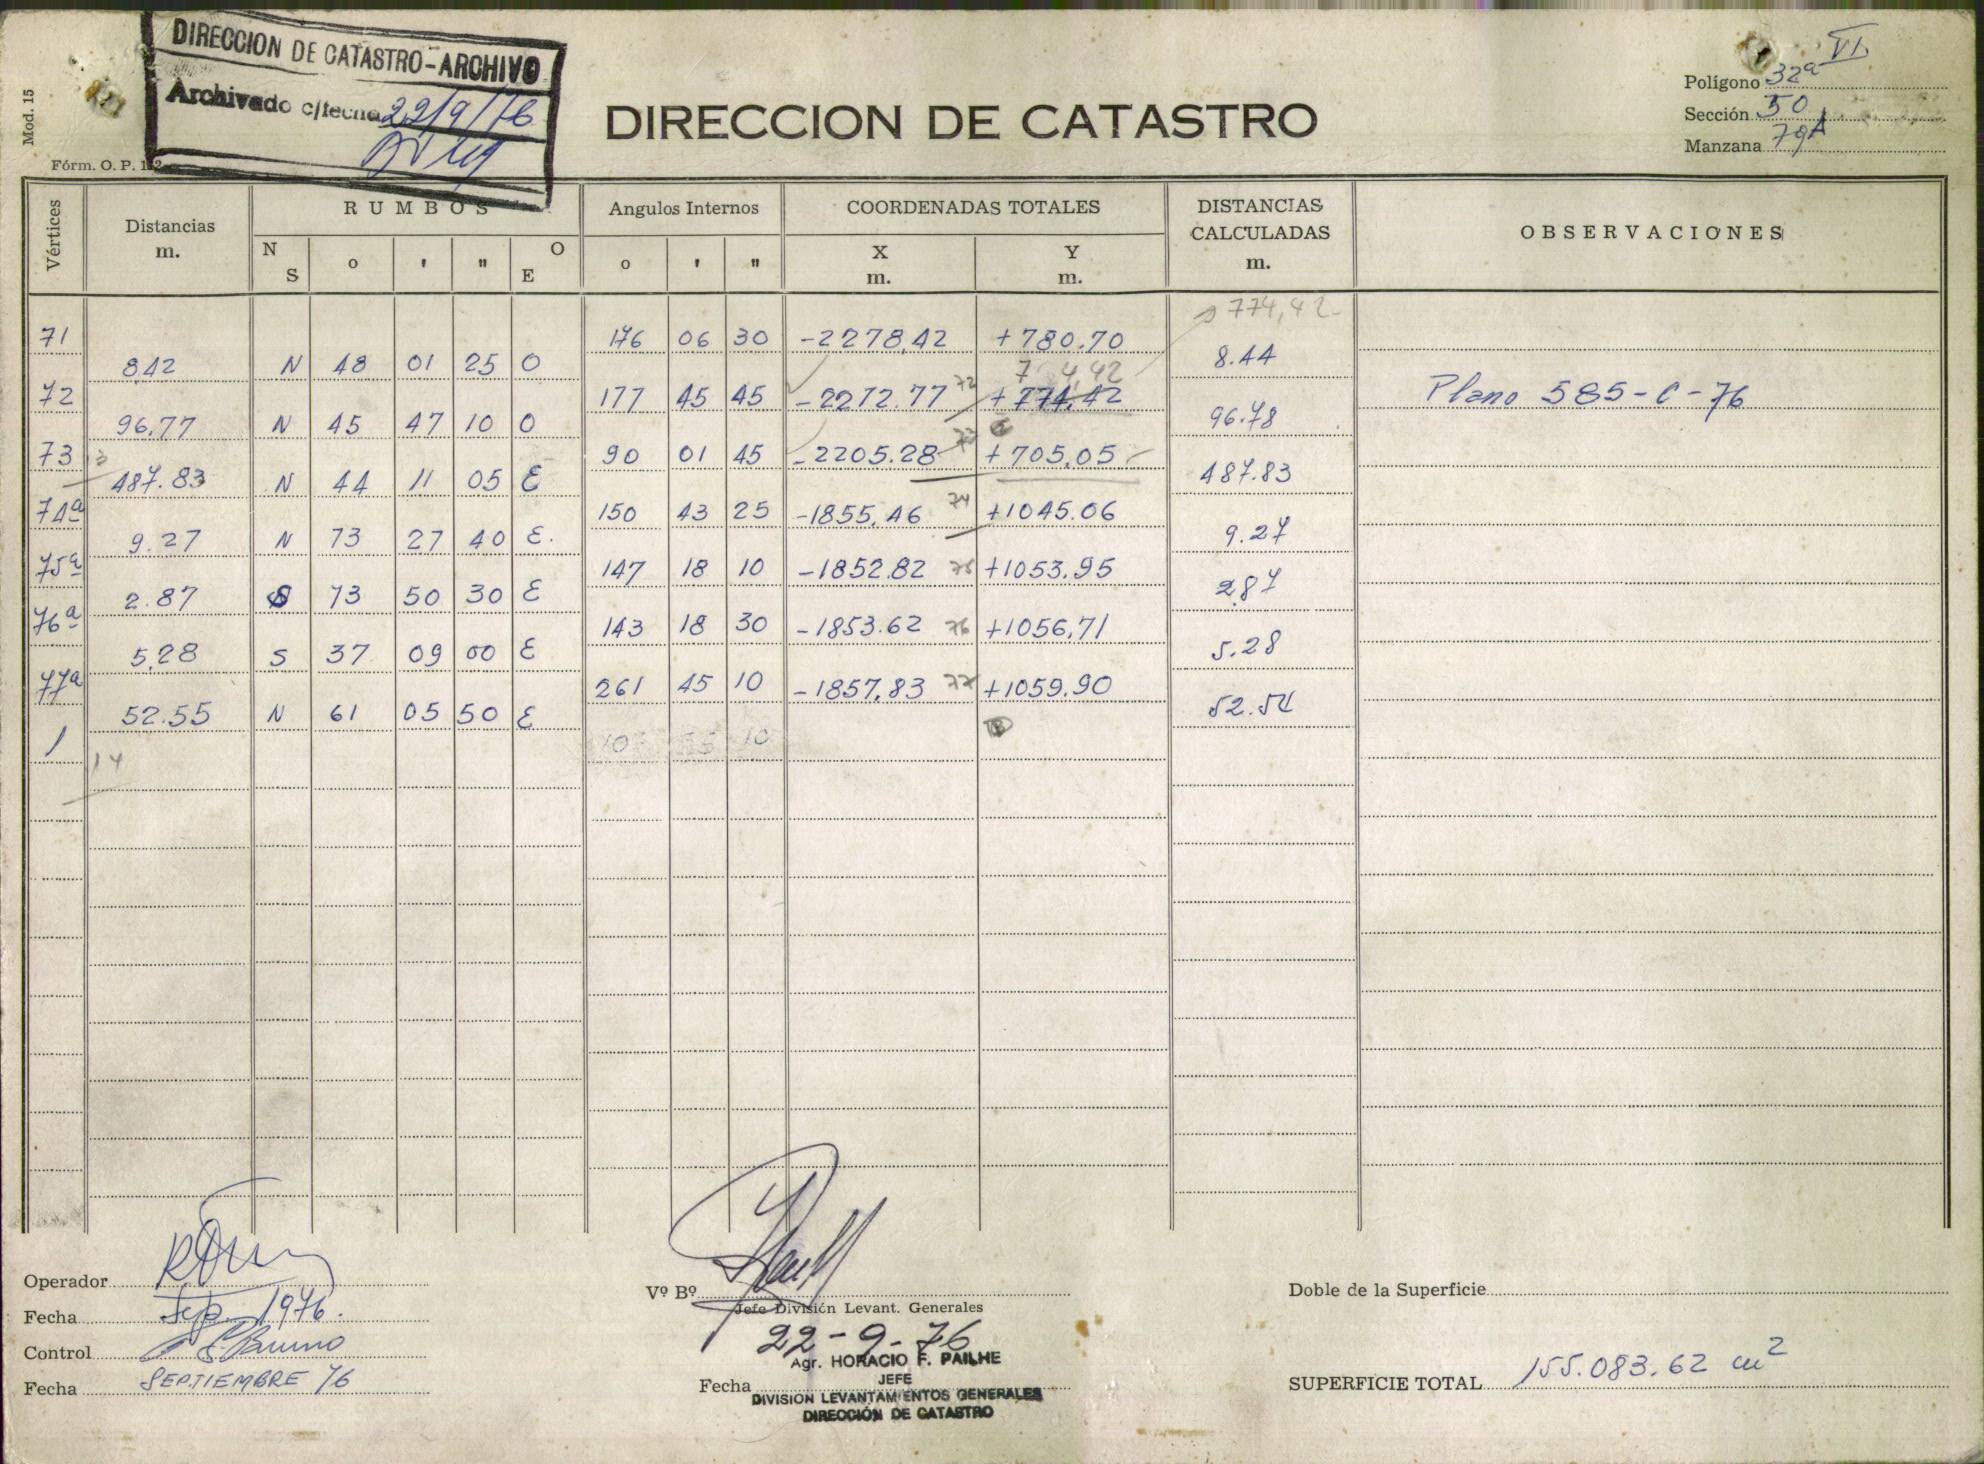 DIRECCION DE CATASTRO-ARCHIVO
Archivado c/fecha 22/9/76
Mod. 15
Fórm. O. P. 1
DIRECCION DE CATASTRO
VI
Polígono 32a
Sección 50
Manzana 79A
Vértices Distancias m. RUMBOS Angulos Internos COORDENADAS TOTALES DISTANCIAS CALCULADAS m. OBSERVACIONES
N S o ' " O E o ' " X m. Y m.
774,42
71 176 06 30 -2278,42 +780.70
8,42 N 48 01 25 O 8.44
7 4,42
72 177 45 45 -2272.77 72 +774,42
Plano 585-C-76
96,77 N 45 47 10 O 96.78
73 90 01 45 -2205.28 73 +705,05
13
487.83 N 44 11 05 E 487.83
74a 150 43 25 -1855,46 74 +1045.06
9.27 N 73 27 40 E. 9.27
75a 147 18 10 -1852.82 75 +1053,95
2.87 S 73 50 30 E 2,87
76a 143 18 30 -1853.62 76 +1056,71
5,28 S 37 09 00 E 5.28
77a 261 45 10 -1857,83 77 +1059,90
52.55 N 61 05 50 E 52.54
1
14
Operador
Fecha Sep. 1976.
Control Bruno
Fecha SEPTIEMBRE 76
Vº Bº
Jefe División Levant. Generales
22-9-76
Agr. HORACIO F. PAILHE
JEFE
Fecha
DIVISION LEVANTAMIENTOS GENERALES
DIRECCIÓN DE CATASTRO
Doble de la Superficie
SUPERFICIE TOTAL 155.083.62 m2